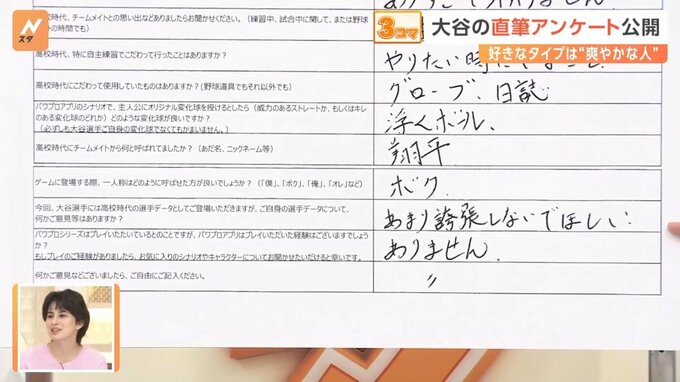 Nスタ
3コマ
大谷の直筆アンケート公開
好きなタイプは"爽やかな人"
高校時代、チームメイトとの思い出などありましたらお聞かせください。(練習中、試合中に関して、または野球
外の時間でも)
高校時代、特に自主練習でこだわって行ったことはありますか?
やりたい時に
高校時代にこだわって使用していたものはありますか?(野球道具でもそれ以外でも)
グローブ、日誌
パワプロアプリのシナリオで、主人公にオリジナル変化球を授けるとしたら(威力のあるストレートか、もしくはキレ
のある変化球のどれか)どのような変化球が良いですか?
(必ずしも大谷選手ご自身の変化球でなくてもかまいません。)
浮くボール、
高校時代にチームメイトから何と呼ばれてましたか?(あだ名、ニックネーム等)
翔平
ゲームに登場する際、一人称はどのように呼ばせた方が良いでしょうか?(「僕」、「ボク」、「俺」、「オレ」など)
ボク.
今回、大谷選手には高校時代の選手データとしてご登場いただきますが、ご自身の選手データについて、
何かご意見等はありますか?
あまり誇張しないでほしい.
パワプロシリーズはプレイいただいているとのことですが、パワプロアプリはプレイいただいた経験はございますでしょう
か?
もしプレイのご経験がありましたら、お気に入りのシナリオやキャラクターについてお聞かせいただけると幸いです。
ありません.
何かご意見などございましたら、ご自由にご記入ください。
〃